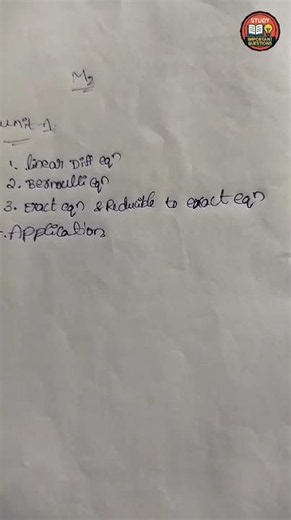 STUDY
IMPORTANT
QUESTIONS
M2
unit-1
1. linear Diff eqn
2. Bernoulli eqn
3. Exact eqn & Reducible to exact eqn
Applications